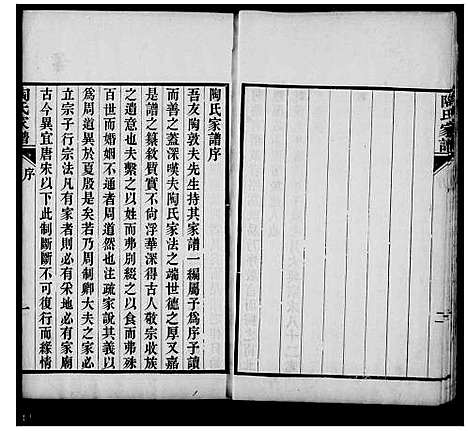 陶氏家譜序
吾友陶敦夫先生持其家譜一編屬予爲序予讀
而善蓋深嘆夫陶氏家法之端世德之厚又嘉
是譜之纂敘質實不尙浮華深得古人敬宗收族
之遺意也夫繫之以姓而弗別綴之以食而弗殊
百世而婚姻不通者周道然也注疏家說其義以
爲周道異於夏殷是矣若乃周制卿大夫之家必
立宗子行宗法凡有家者則必有采地必有家廟
古今異宜唐宋以下此制斷斷不可復行而緣情
陶氏家譜
序
一
陶氏家譜